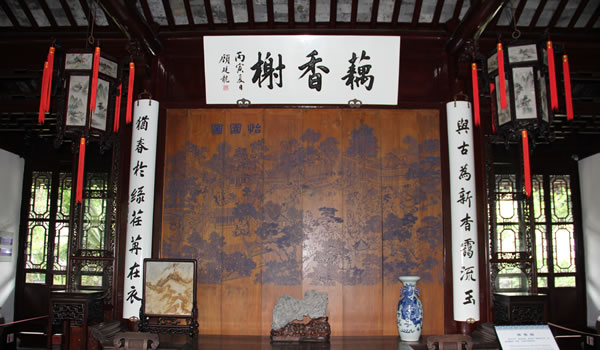 藕香榭
丙寅夏日
顧廷龍
怡園圖
與古為新香靄流玉
猶春於綠荏苒在衣